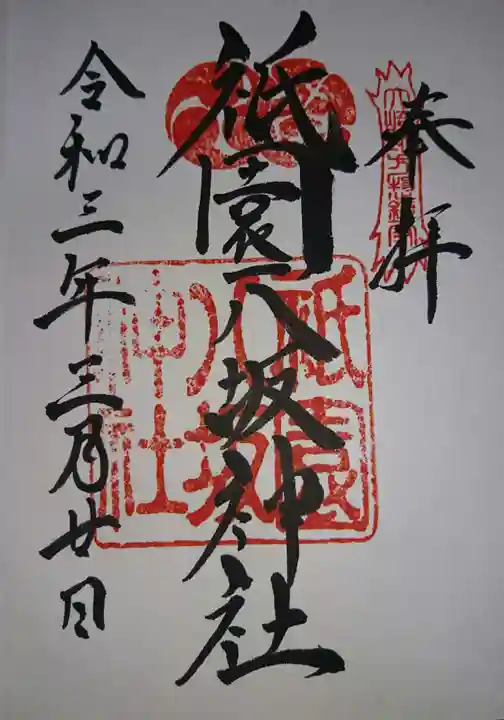 奉拝
祇園八坂神社
祇園八坂神社
令和三年三月廿日